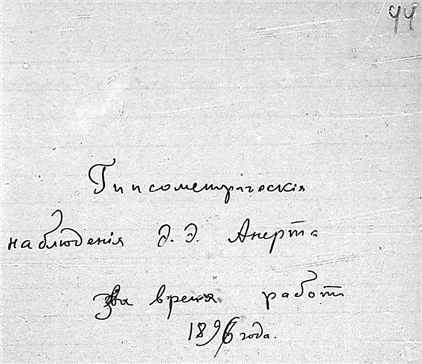 44
Гипсометрическія
наблюденія Э. Э. Анерта
За время работ
1896 года.